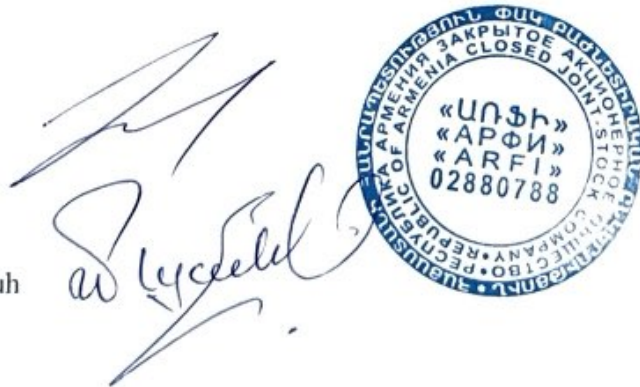 «ԱՌՖԻ»
«АРФИ»
«ARFI»
02880788
ՀԱՅԱՍՏԱՆԻ ՀԱՆՐԱՊԵՏՈՒԹՅՈՒՆ ՓԱԿ ԲԱԺՆԵՏԻՐԱԿԱՆ ԸՆԿԵՐՈՒԹՅՈՒՆ
РЕСПУБЛИКА АРМЕНИЯ ЗАКРЫТОЕ АКЦИОНЕРНОЕ ОБЩЕСТВО
REPUBLIC OF ARMENIA CLOSED JOINT-STOCK COMPANY